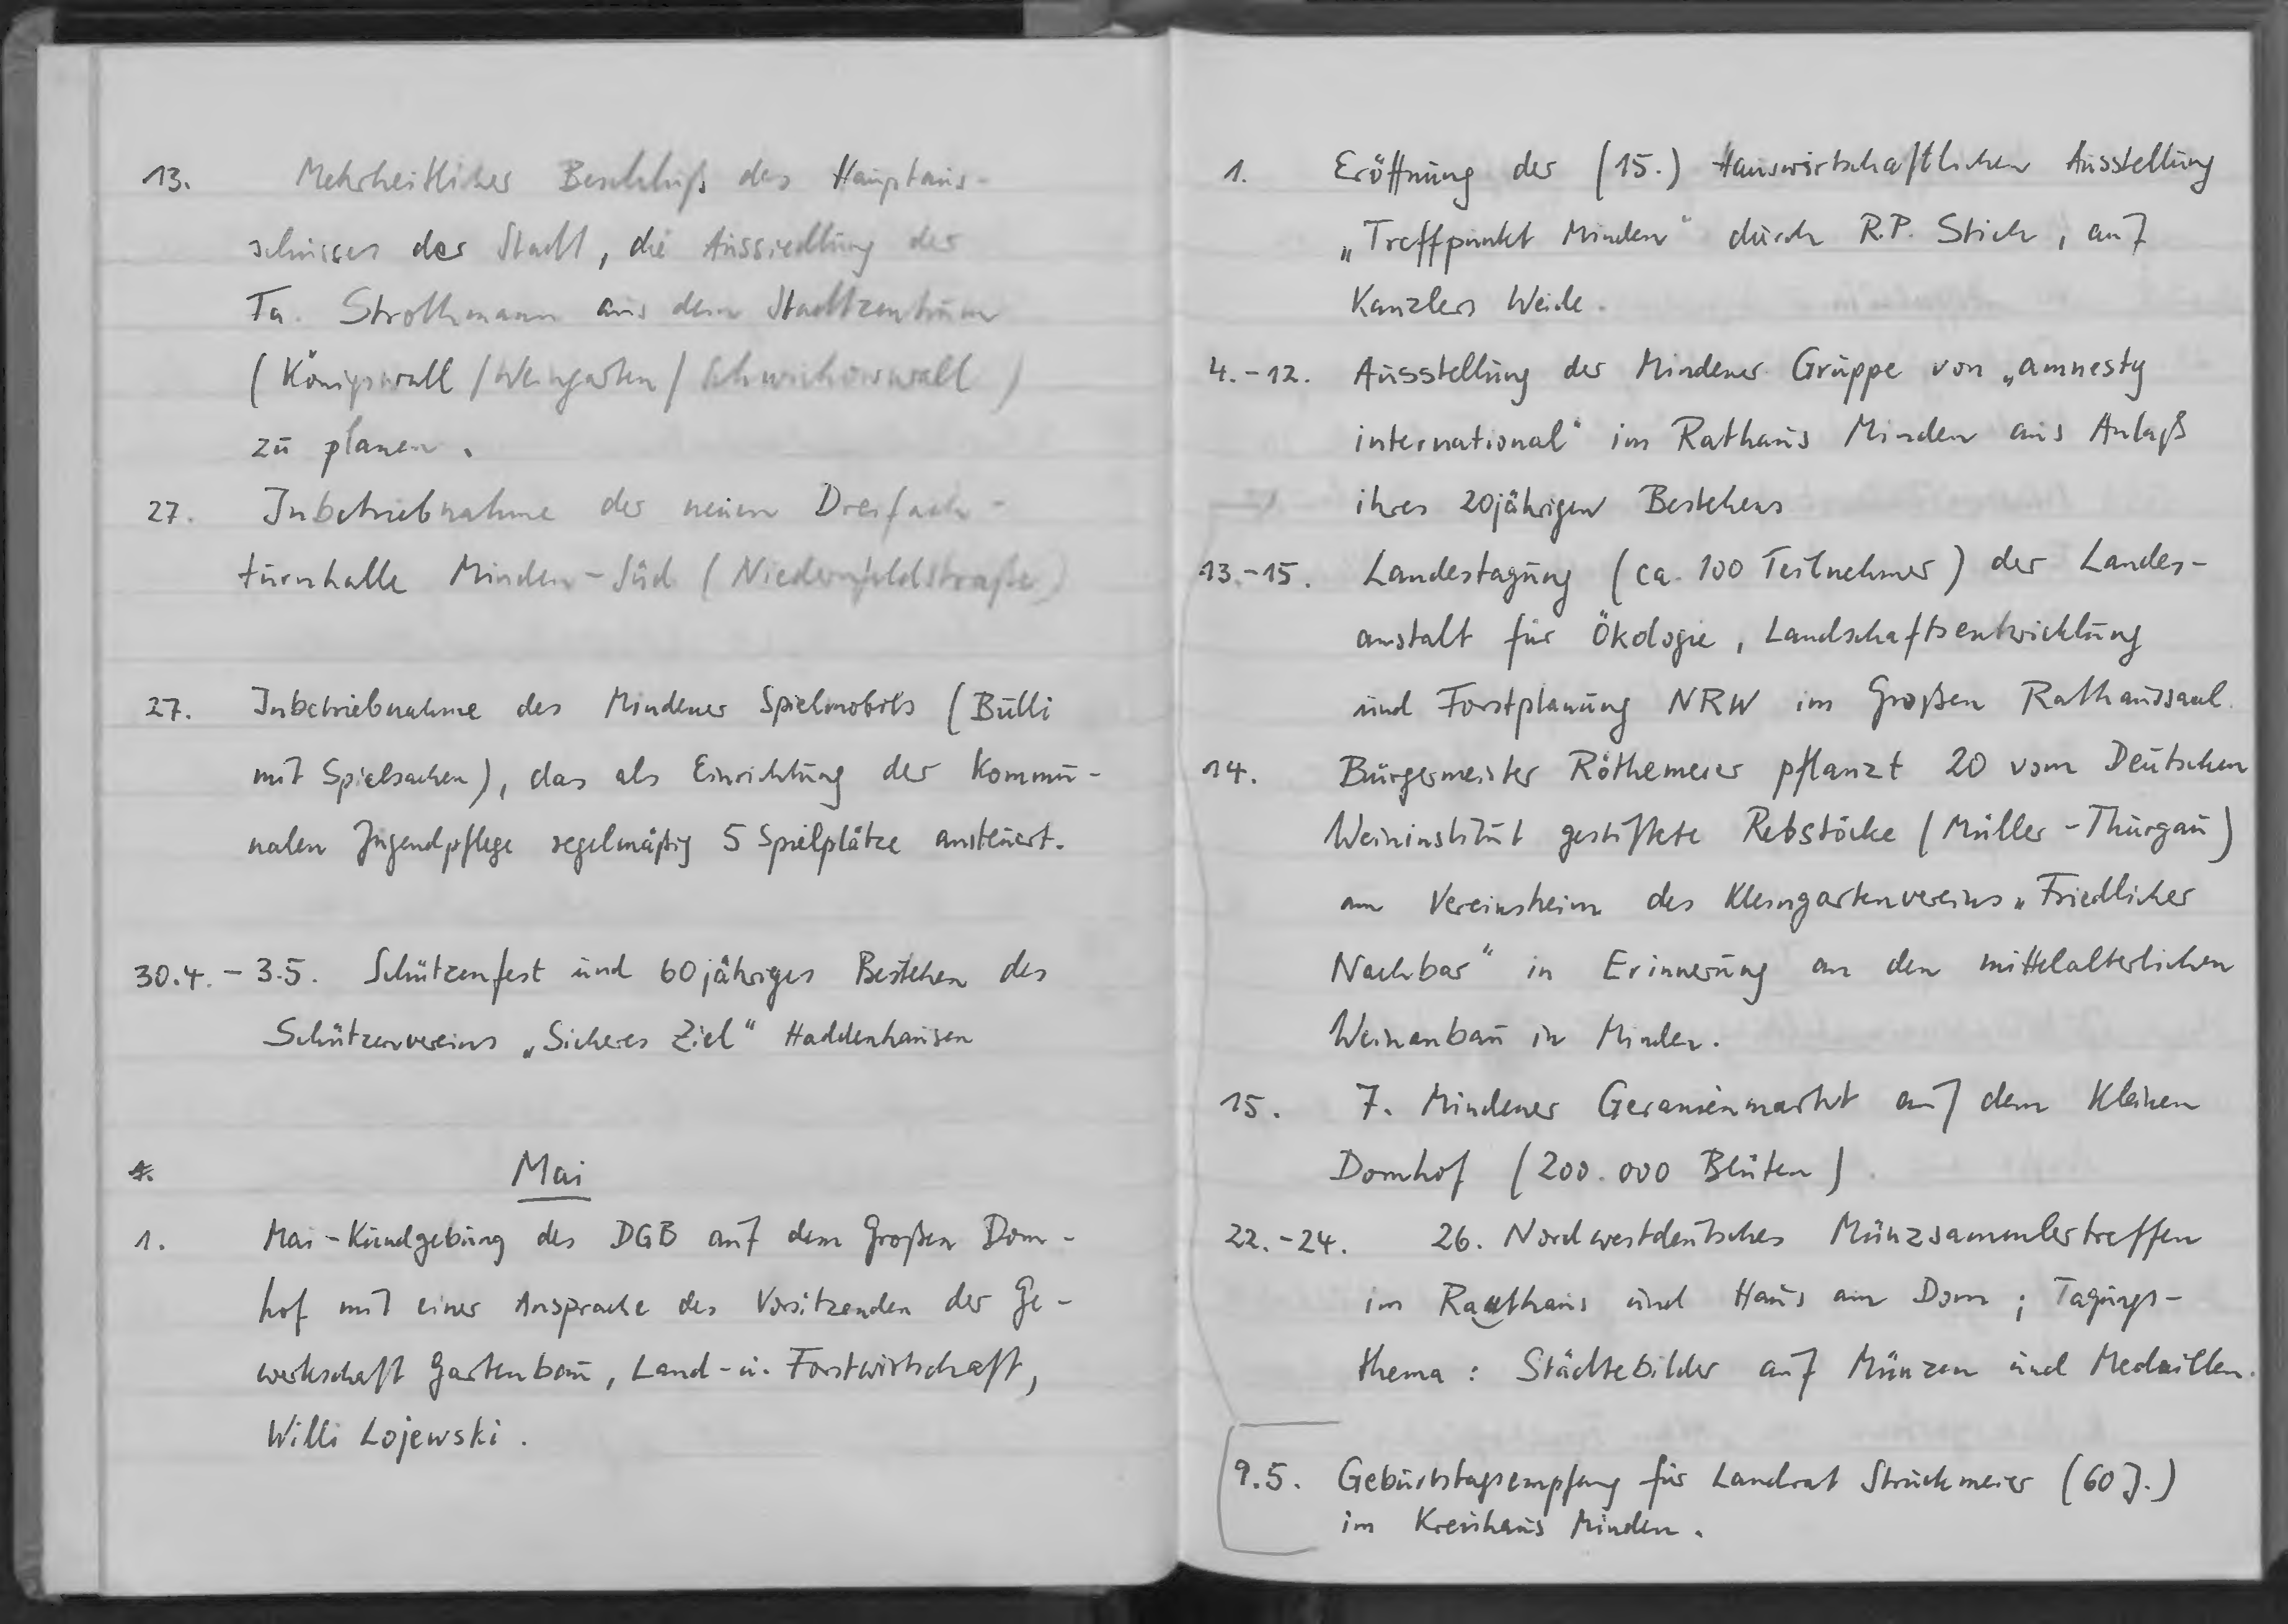 13. Mehrheitlicher Beschluß des Hauptaus-
schusses der Stadt, die Aussiedlung der
Fa. Strothmann aus dem Stadtzentrum
(Königswall / Weingarten / Schwichowwall)
zu planen.
27. Inbetriebnahme der neuen Dreifach-
turnhalle Minden-Süd (Niedernfeldstraße)
27. Inbetriebnahme des Mindener Spielmobils (Bulli
mit Spielsachen), das als Einrichtung der Kommu-
nalen Jugendpflege regelmäßig 5 Spielplätze ansteuert.
30.4. - 3.5. Schützenfest und 60jähriges Bestehen des
Schützenvereins „Sicheres Ziel“ Haddenhausen
Mai
1. Mai-Kundgebung des DGB auf dem Großen Dom-
hof mit einer Ansprache des Vorsitzenden der Ge-
werkschaft Gartenbau, Land- u. Forstwirtschaft,
Willi Lojewski.
1. Eröffnung der (15.) Hauswirtschaftlichen Ausstellung
„Treffpunkt Minden“ durch R.P. Stich, auf
Kanzlers Weide.
4.-12. Ausstellung der Mindener Gruppe von „amnesty
international“ im Rathaus Minden aus Anlaß
ihres 20jährigen Bestehens
13.-15. Landestagung (ca. 100 Teilnehmer) der Landes-
anstalt für Ökologie, Landschaftsentwicklung
und Forstplanung NRW im Großen Rathaussaal.
14. Bürgermeister Röthemeier pflanzt 20 vom Deutschen
Weininstitut gestiftete Rebstöcke (Müller-Thurgau)
am Vereinsheim des Kleingartenvereins „Friedlicher
Nachbar“ in Erinnerung an den mittelalterlichen
Weinanbau in Minden.
15. 7. Mindener Geranienmarkt auf dem Kleinen
Domhof (200.000 Blüten)
22.-24. 26. Nordwestdeutsches Münzsammlertreffen
im Rathaus und Haus am Dom; Tagungs-
thema: Städtebilder auf Münzen und Medaillen.
9.5. Geburtstagsempfang für Landrat Struckmeier (60 J.)
im Kreishaus Minden.